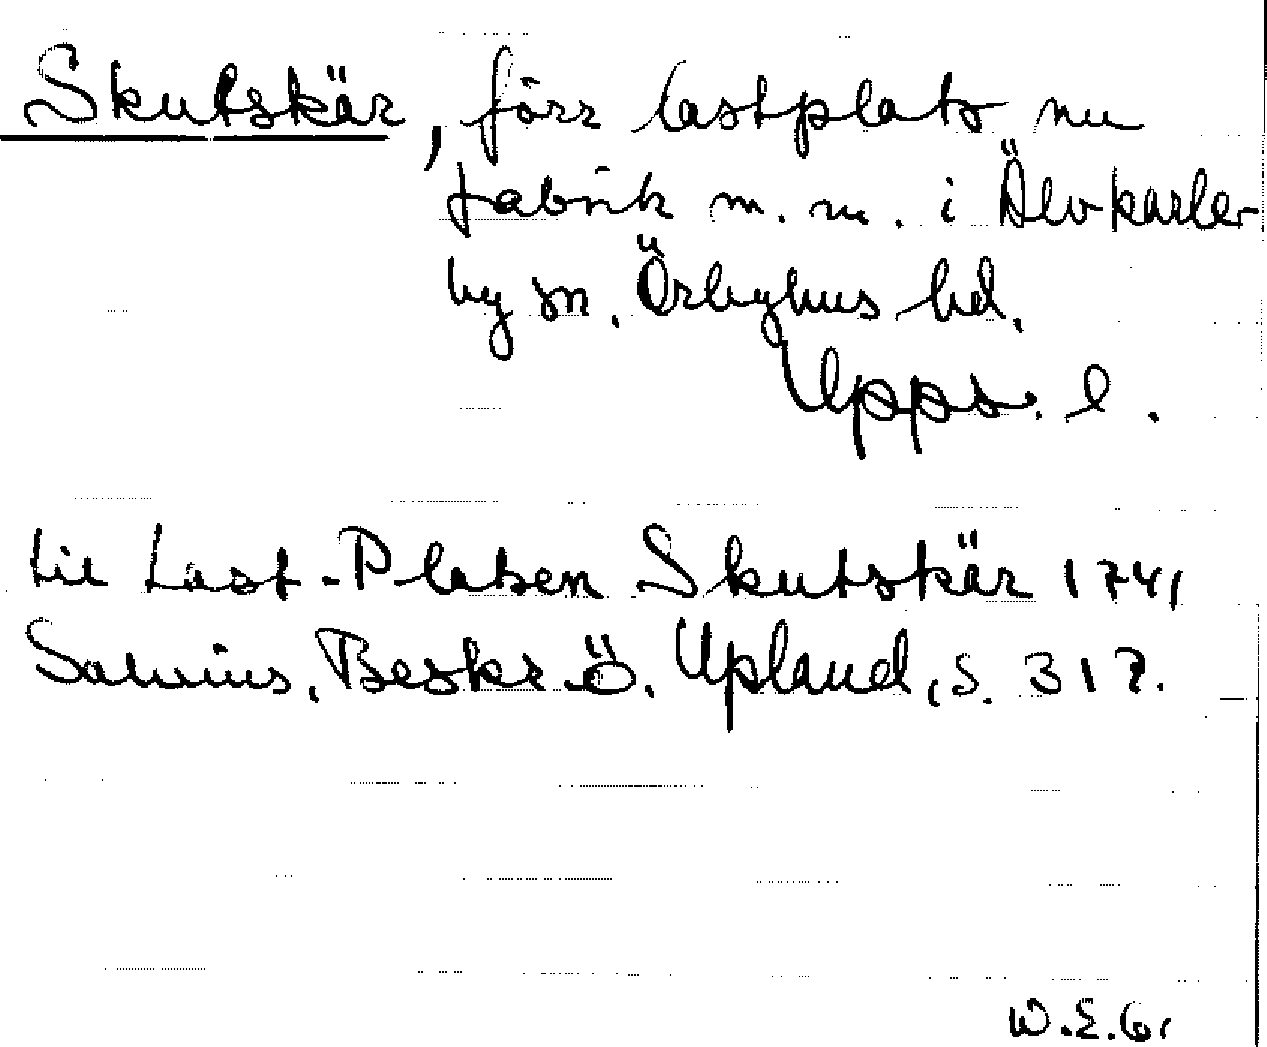 Skutskär, förr lastplats nu
fabrik m.m. i Älvkarle-
by sn. Örbyhus hd.
Upps. l.
til Last-Platsen Skutskär 1741
Salvius, Beskr. ö. Upland, s. 317.
W.E.G.